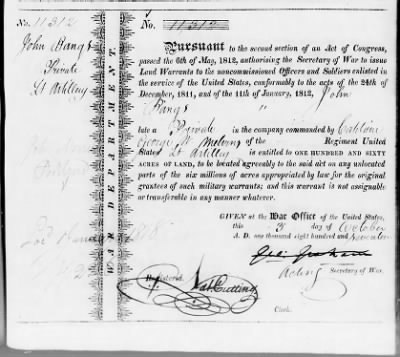 No. 11312
No. 11312
John Bangs
Private
Lt Artillery
WAR DEPARTMENT.
Pursuant to the second section of an Act of Congress,
passed the 6th of May, 1812, authorising the Secretary of War to issue
Land Warrants to the noncommissioned Officers and Soldiers enlisted
in the service of the United States, conformably to the acts of the 24th of
December, 1811, and of the 11th of January, 1812, John
Bangs "
late a Private in the company commanded by Captain
George of the Regiment United
States Lt Artillery is entitled to ONE HUNDRED AND SIXTY
ACRES OF LAND, to be located agreeably to the said act on any unlocated
parts of the six millions of acres appropriated by law for the original
grantees of such military warrants; and this warrant is not assignable
or transferable in any manner whatever.
GIVEN at the War Office of the United States,
this day of October
A. D. one thousand eight hundred and seventeen
Geo: Graham
Acting Secretary of War.
Registered Nat. Cutting
Clerk.